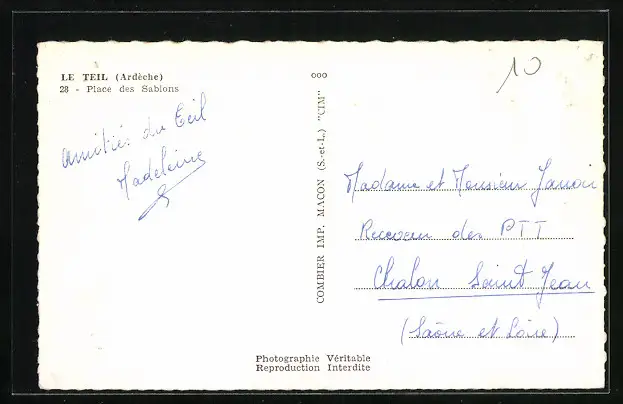 LE TEIL (Ardèche)
28 - Place des Sablons
Amitiés du Teil
Madeleine
ooo
COMBIER IMP. MACON (S.-et-L.) "CIM"
10
Madame et Monsieur Janoir
Receveur des PTT
Chalon Saint Jean
(Saône et Loire)
Photographie Véritable
Reproduction Interdite